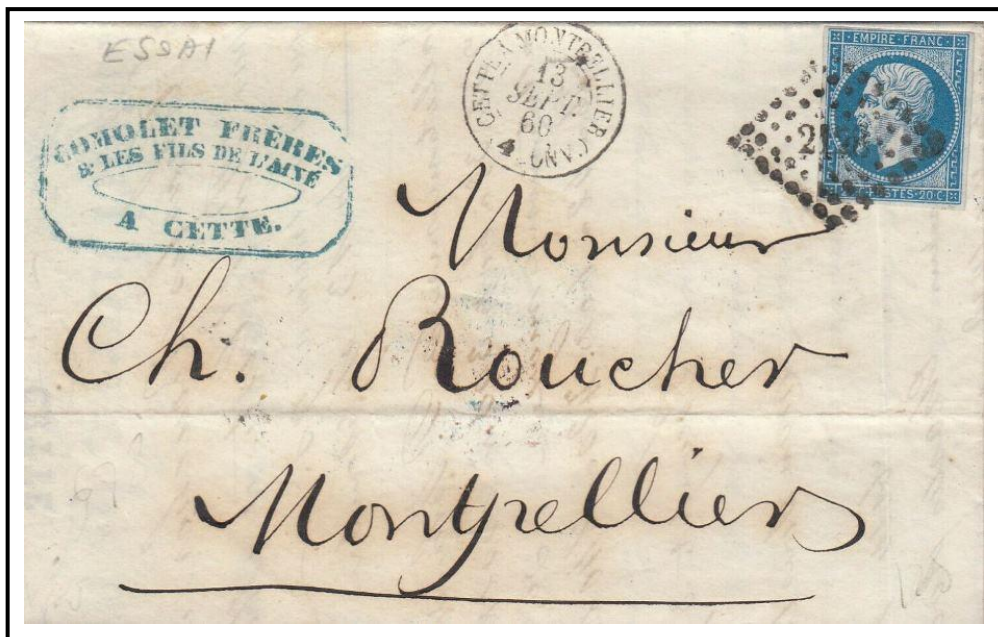 ESSAI
COMOLET FRÈRES
& LES FILS DE L'AINÉ
A CETTE.
CETTE A MONTPELLIER (ANNO)
13
SEPT.
60
4
EMPIRE · FRANC ·
POSTES · 20 · C ·
Monsieur
Ch. Roucher
Montpellier